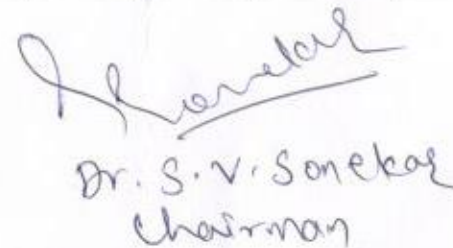 Dr. S. V. Sonekar
Chairman